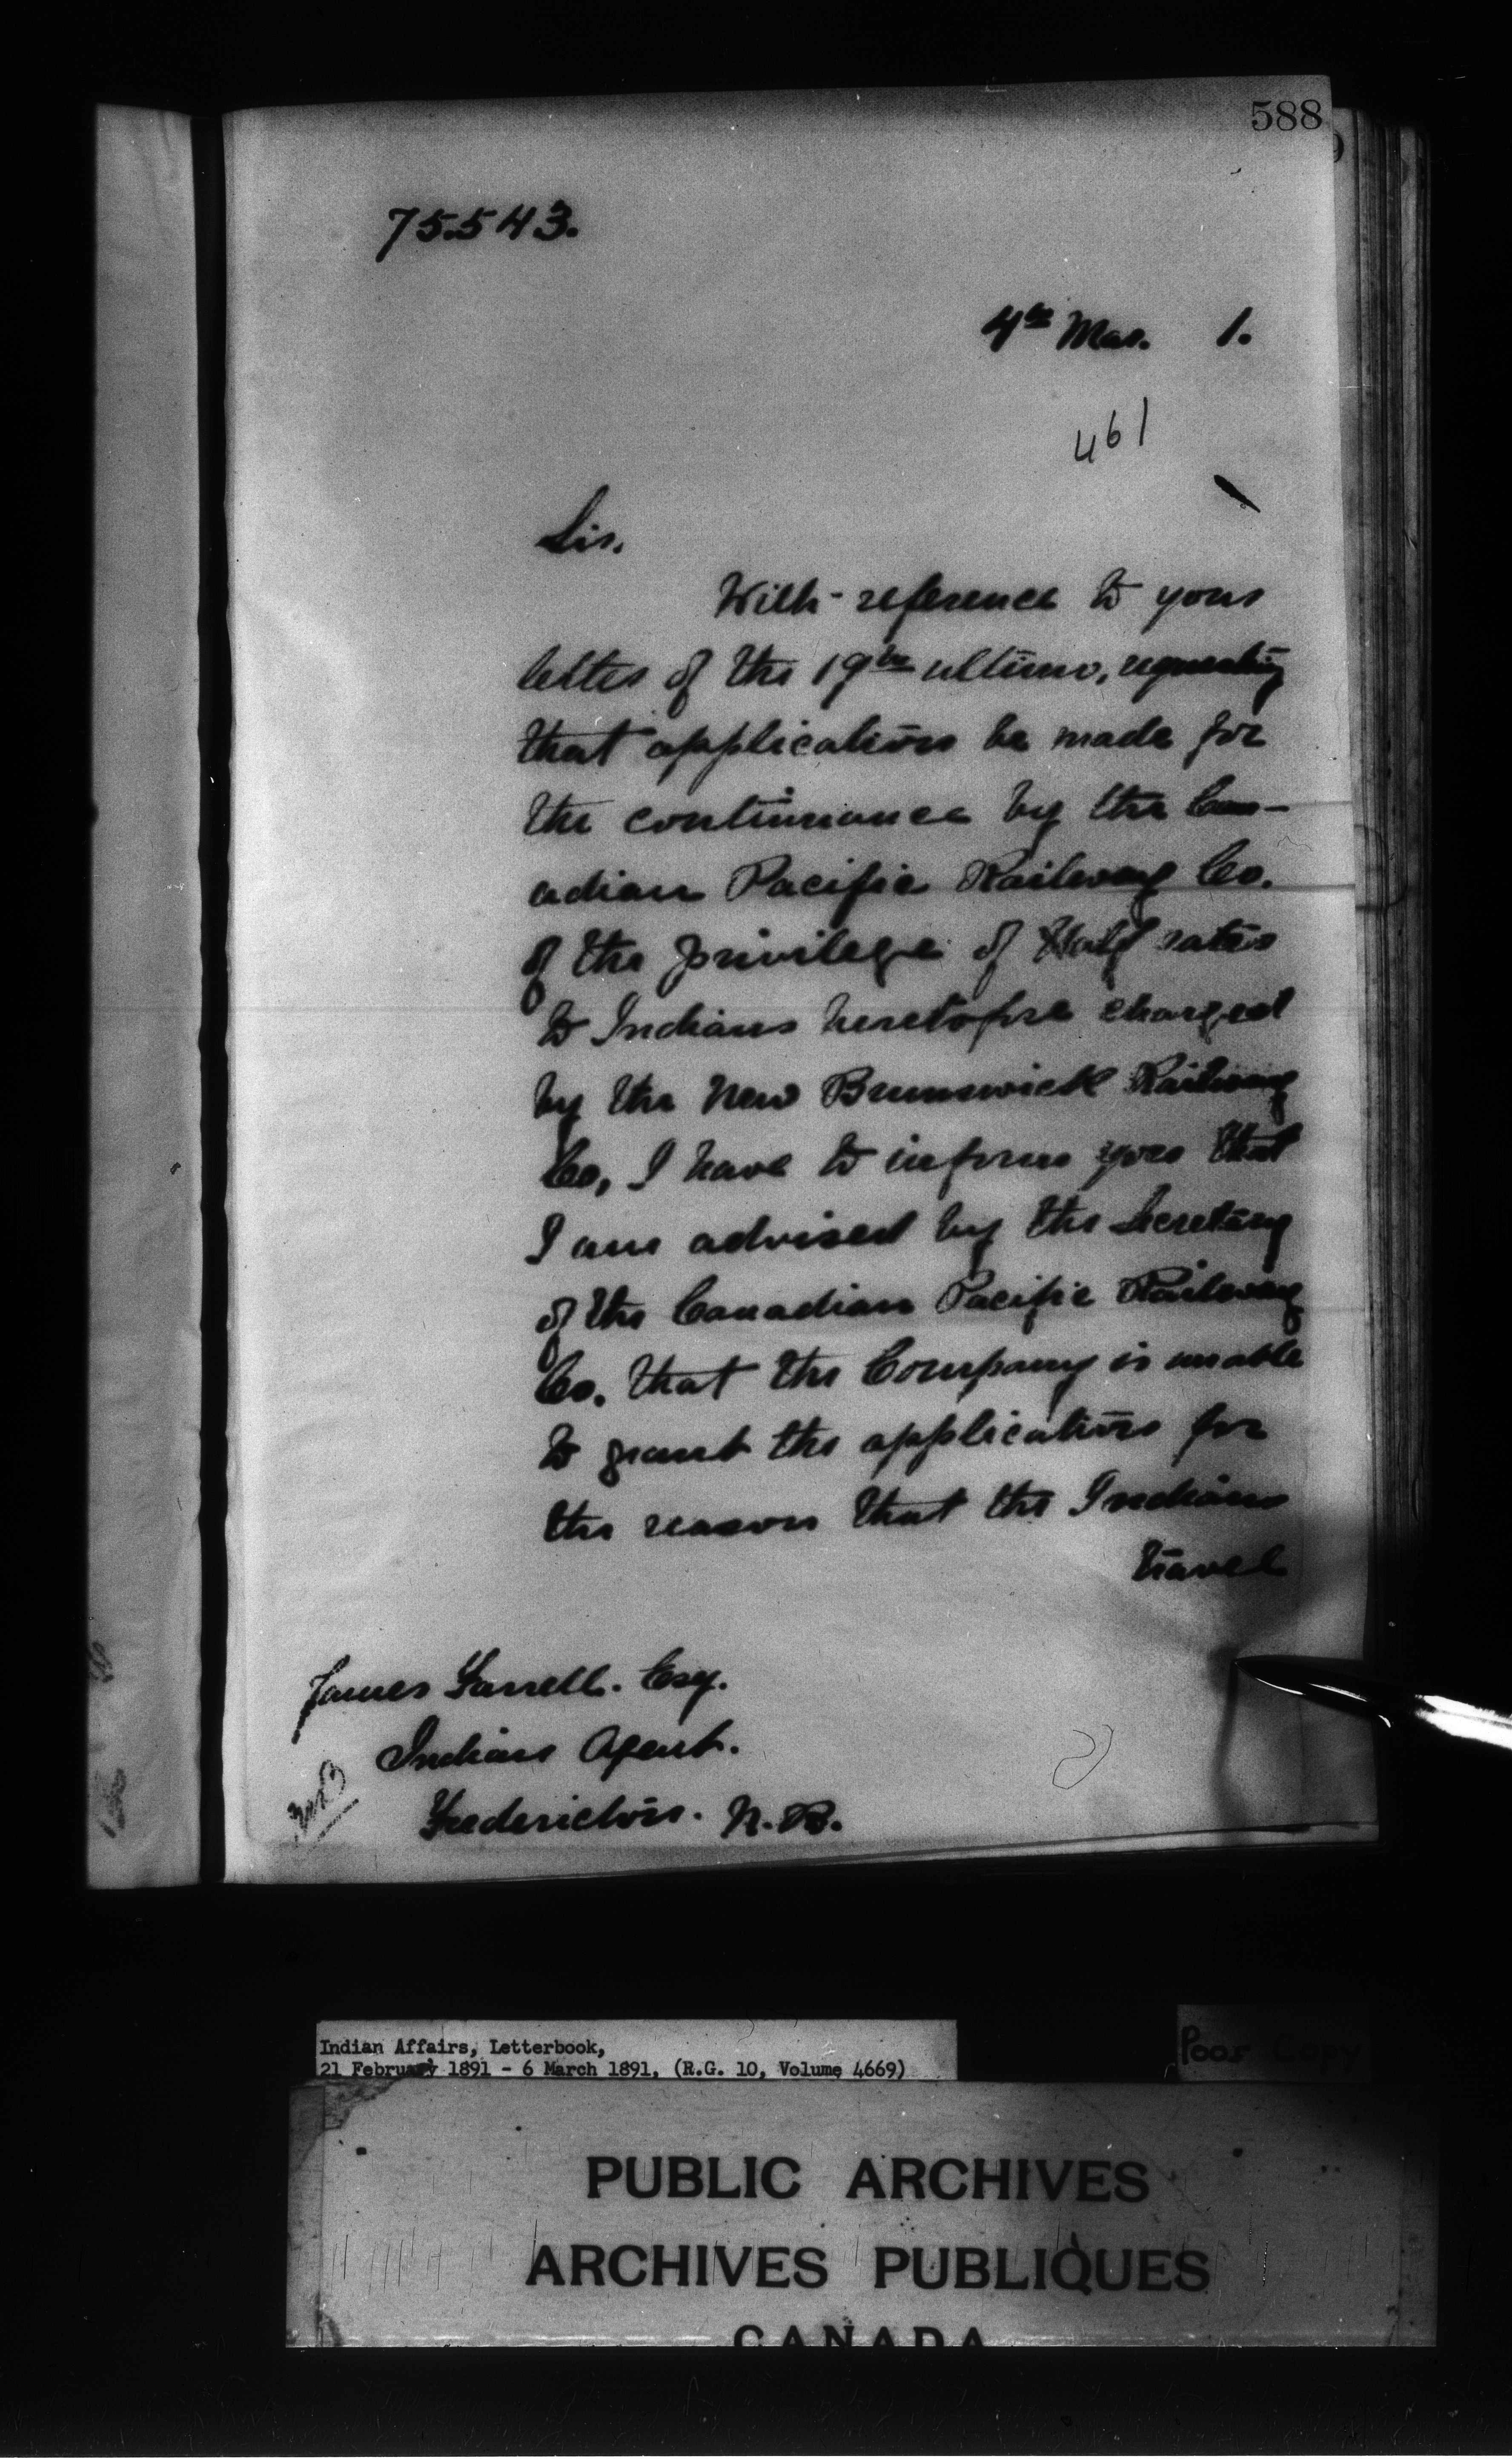 588
75.543.
4th Mar. 1.
461
Sir,
With reference to your
letter of the 19th ultimo, requesting
that application be made for
the continuance by the Can-
adian Pacific Railway Co.
of the privilege of Half rates
to Indians heretofore charged
by the New Brunswick Railway
Co, I have to inform you that
I am advised by the Secretary
of the Canadian Pacific Railway
Co. that the Company is unable
to grant the application for
the reason that the Indians
travel
James Farrell. Esq.
Indian Agent.
Fredericton. N.B.
Indian Affairs, Letterbook,
21 February 1891 - 6 March 1891, (R.G. 10, Volume 4669)
Poor Copy
PUBLIC ARCHIVES
ARCHIVES PUBLIQUES
CANADA